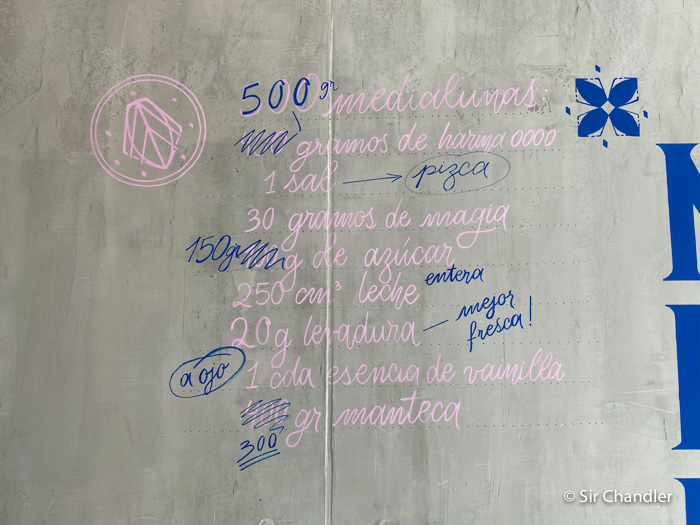 500 gr medialunas:
gramos de harina 0000
1 sal → pizca
30 gramos de magia
150gr g de azúcar
250 cm³ leche entera
20g levadura — mejor fresca!
a ojo 1 cda esencia de vainilla
300 gr manteca
© Sir Chandler